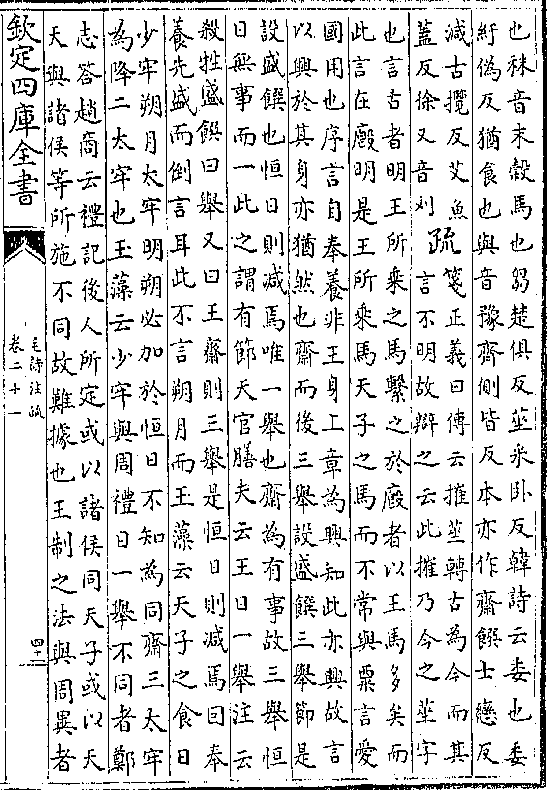 也秣音末穀馬也芻楚俱反莝采卧反韓詩云委也委
紆偽反猶食也與音豫齊側皆反本亦作齋饌士戀反
減古攬反艾魚
蓋反徐又音刈疏箋正義曰傳云摧莝轉古為今而其
言不明故辯之云此摧乃今之莝字
也言古者明王所乗之馬繫之於廐者以王馬多矣而
此言在廐明是王所乗馬天子之馬而不常與粟言愛
國用也序言自奉養非王身上章為興知此亦興故言
以興於其身亦猶然也齋而後三舉設盛饌三舉節是
設盛饌也恒日則減焉唯一舉也齋為有事故三舉恒
日無事而一此之謂有節天官膳夫云王日一舉注云
殺牲盛饌曰舉又曰王齋則三舉是恒日則減焉囘奉
養先盛而倒言耳此不言朔月而玉藻云天子之食日
少牢朔月太牢明朔必加於恒日不知為同齋三太牢
為降二太牢也玉藻云少牢與周禮日一舉不同者鄭
志答趙商云禮記後人所定或以諸侯同天子或以天
天與諸侯等所施不同故難據也王制之法與周異者
欽定四庫全書
毛詩注疏
卷二十一
四十一